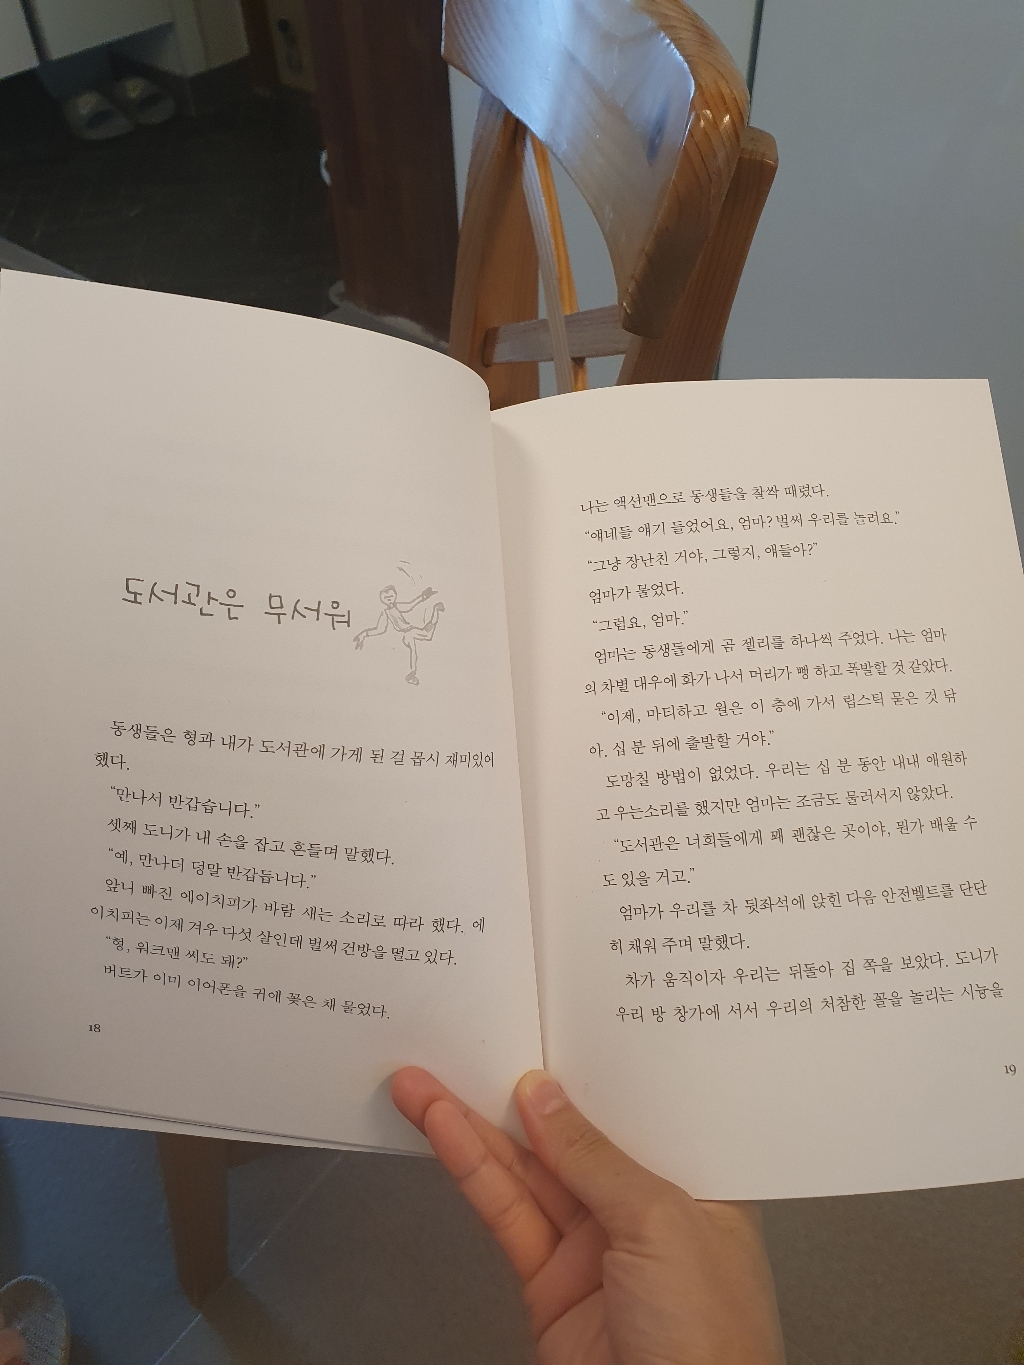 도서관은 무서워
동생들은 형과 내가 도서관에 가게 된 걸 몹시 재미있어
했다.
“만나서 반갑습니다.”
셋째 도니가 내 손을 잡고 흔들며 말했다.
“예, 만나더 덩말 반갑듭니다.”
앞니 빠진 에이치피가 바람 새는 소리로 따라 했다. 에
이치피는 이제 겨우 다섯 살인데 벌써 건방을 떨고 있다.
“형, 워크맨 써도 돼?”
버트가 이미 이어폰을 귀에 꽂은 채 물었다.
18
나는 액션맨으로 동생들을 찰싹 때렸다.
“얘네들 얘기 들었어요, 엄마? 벌써 우리를 놀려요.”
“그냥 장난친 거야, 그렇지, 얘들아?”
엄마가 물었다.
“그럼요, 엄마.”
엄마는 동생들에게 곰 젤리를 하나씩 주었다. 나는 엄마
의 차별 대우에 화가 나서 머리가 뻥 하고 폭발할 것 같았다.
“이제, 마티하고 윌은 이 층에 가서 립스틱 묻은 것 닦
아. 십 분 뒤에 출발할 거야.”
도망칠 방법이 없었다. 우리는 십 분 동안 내내 애원하
고 우는소리를 했지만 엄마는 조금도 물러서지 않았다.
“도서관은 너희들에게 꽤 괜찮은 곳이야, 뭔가 배울 수
도 있을 거고.”
엄마가 우리를 차 뒷좌석에 앉힌 다음 안전벨트를 단단
히 채워 주며 말했다.
차가 움직이자 우리는 뒤돌아 집 쪽을 보았다. 도니가
우리 방 창가에 서서 우리의 처참한 꼴을 놀리는 시늉을
19